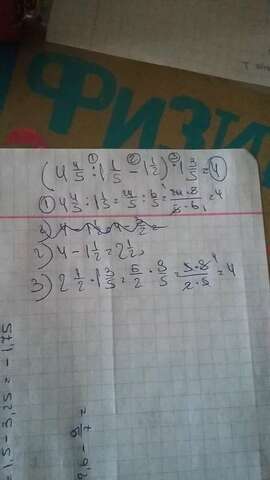 ФИЗИ
(4 4/5 : 1 1/5 - 1 1/2) · 1 3/5 = 4
1) 4 4/5 : 1 1/5 = 24/5 : 6/5 = = 4
2) 4 - 1 1/2 = 2 1/2
3) 2 1/2 · 1 3/5 = 5/2 · 8/5 = 5·8/2·5 = 4
= 1,5 - 3,25 = - 1,75